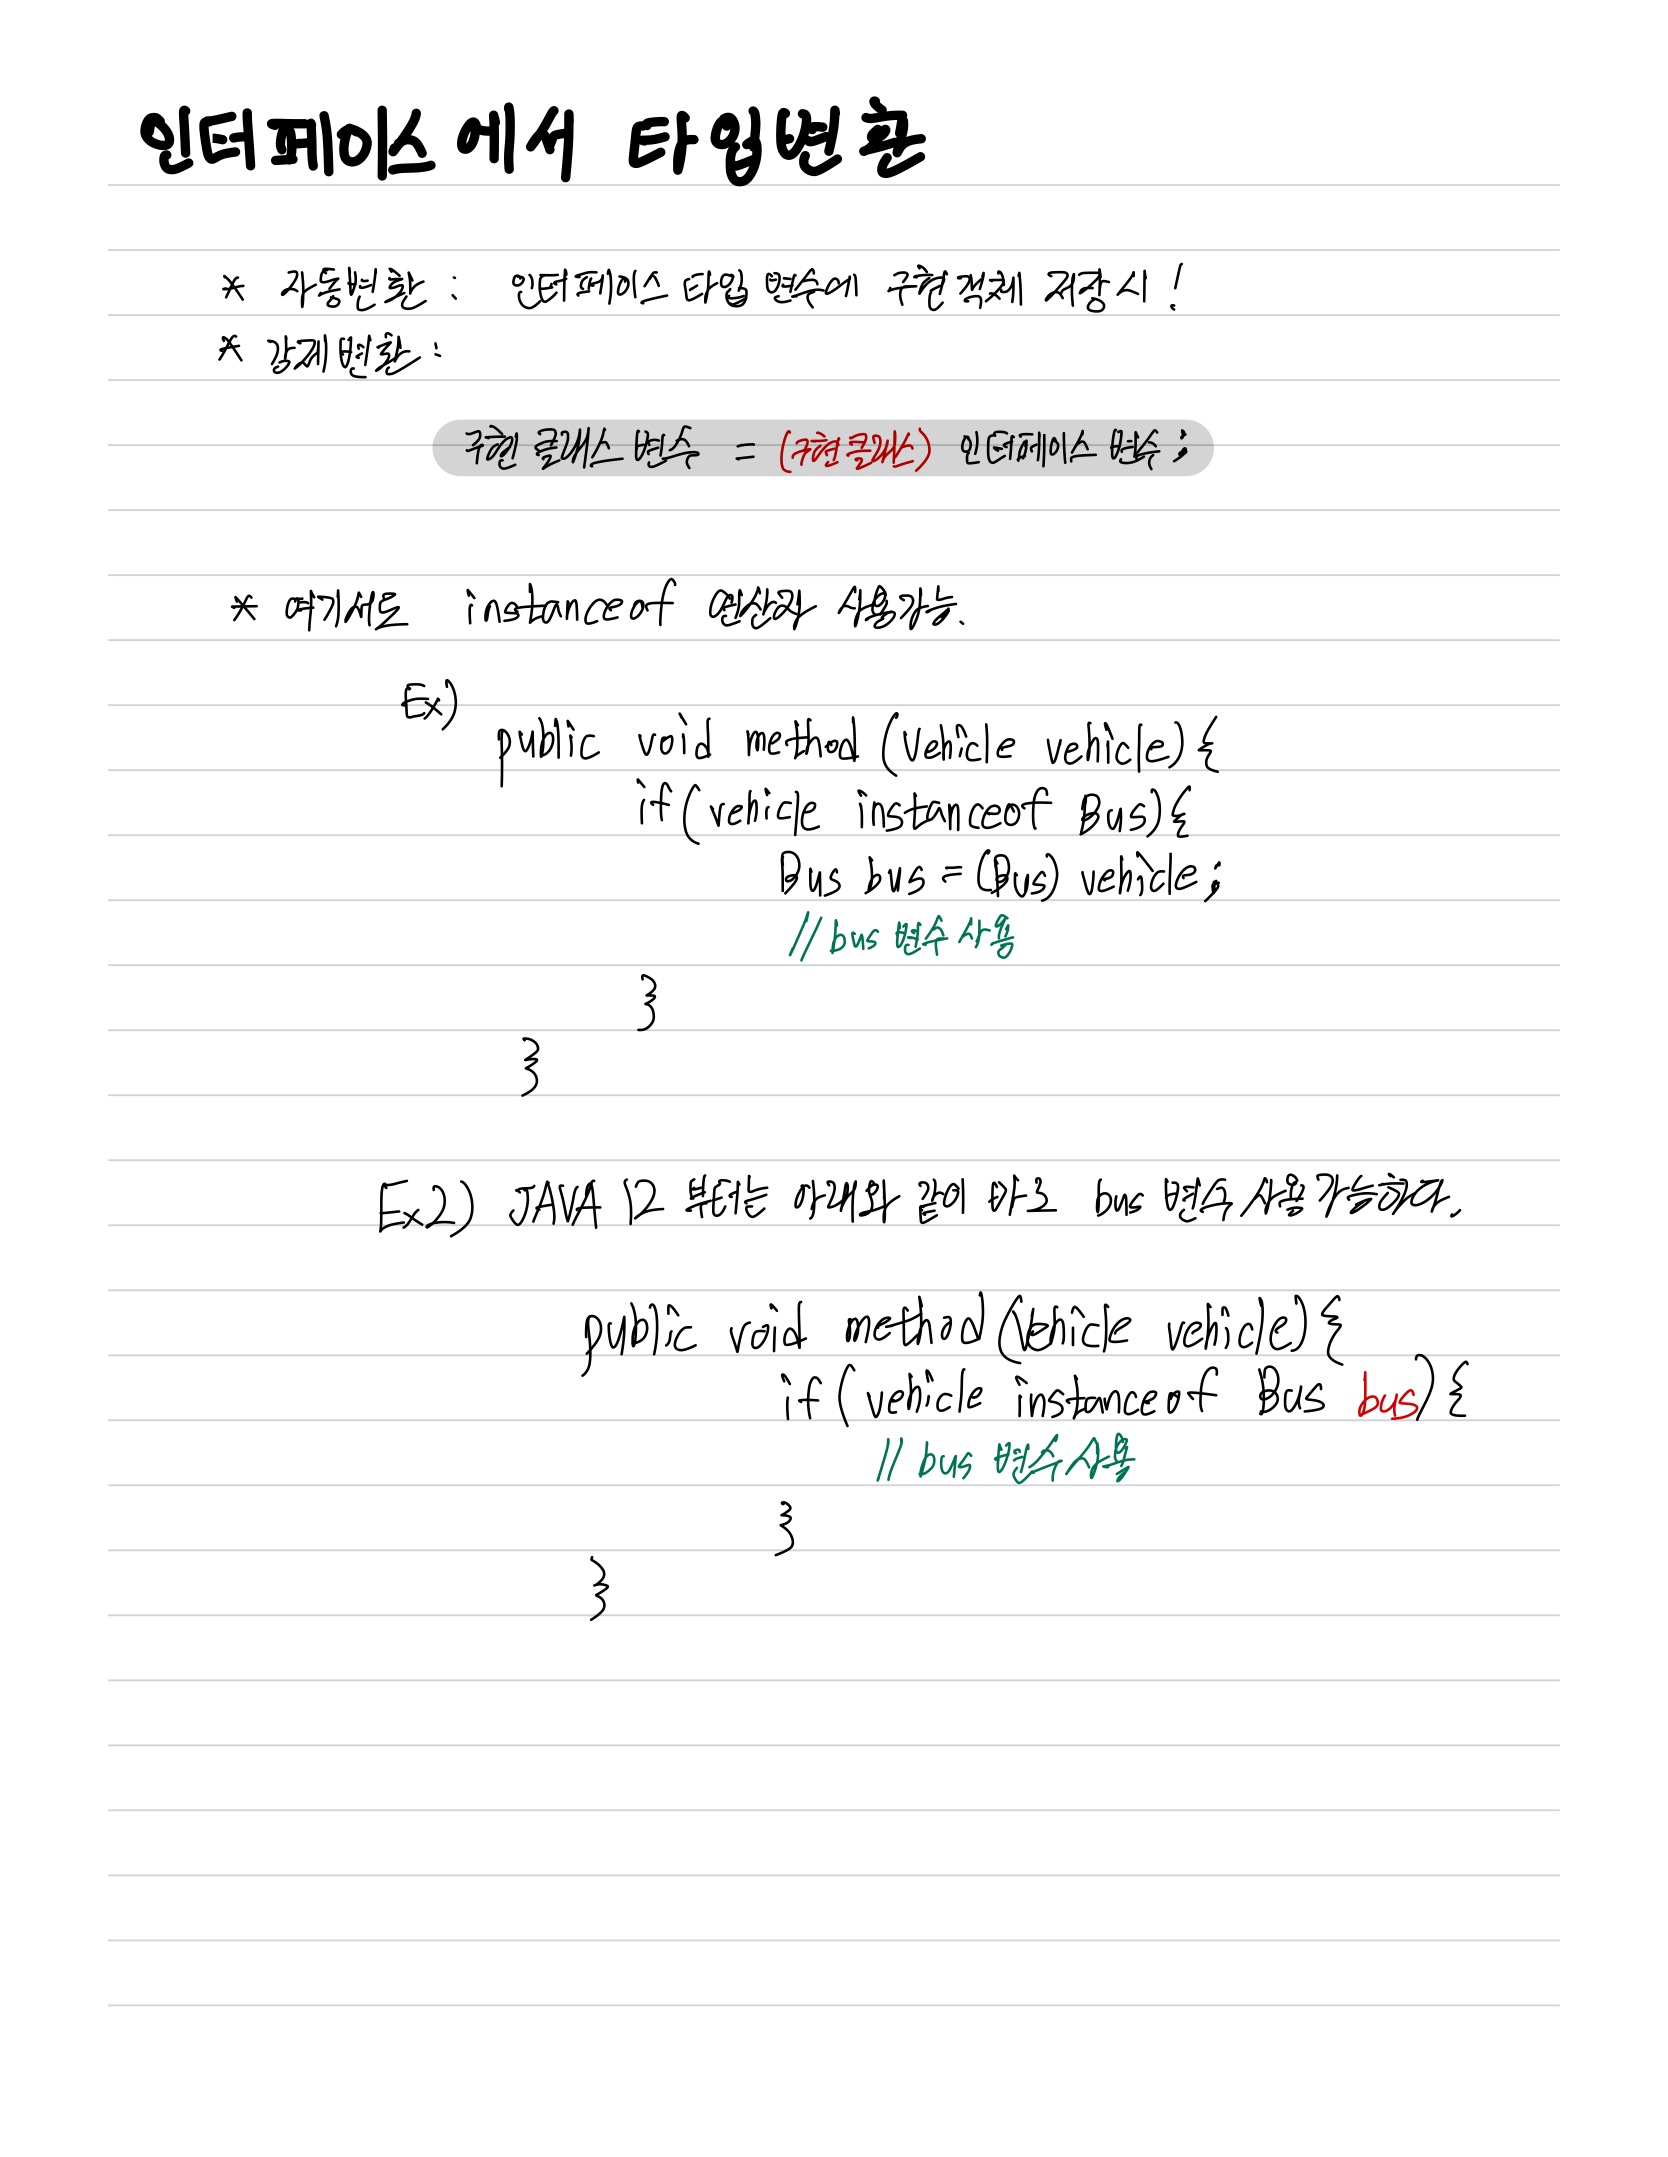 인터페이스에서 타입변환
* 자동변환 : 인터페이스 타입 변수에 구현객체 저장시!
* 강제변환 :
구현 클래스 변수 = (구현클래스) 인터페이스 변수;
* 여기서도 instanceof 연산자 사용가능.
Ex)
public void method (Vehicle vehicle) {
if (vehicle instanceof Bus) {
Bus bus = (Bus) vehicle;
// bus 변수 사용
}
}
Ex2) JAVA 12 부터는 아래와 같이 바로 bus 변수 사용가능하다.
public void method (Vehicle vehicle) {
if (vehicle instanceof Bus bus) {
// bus 변수 사용
}
}